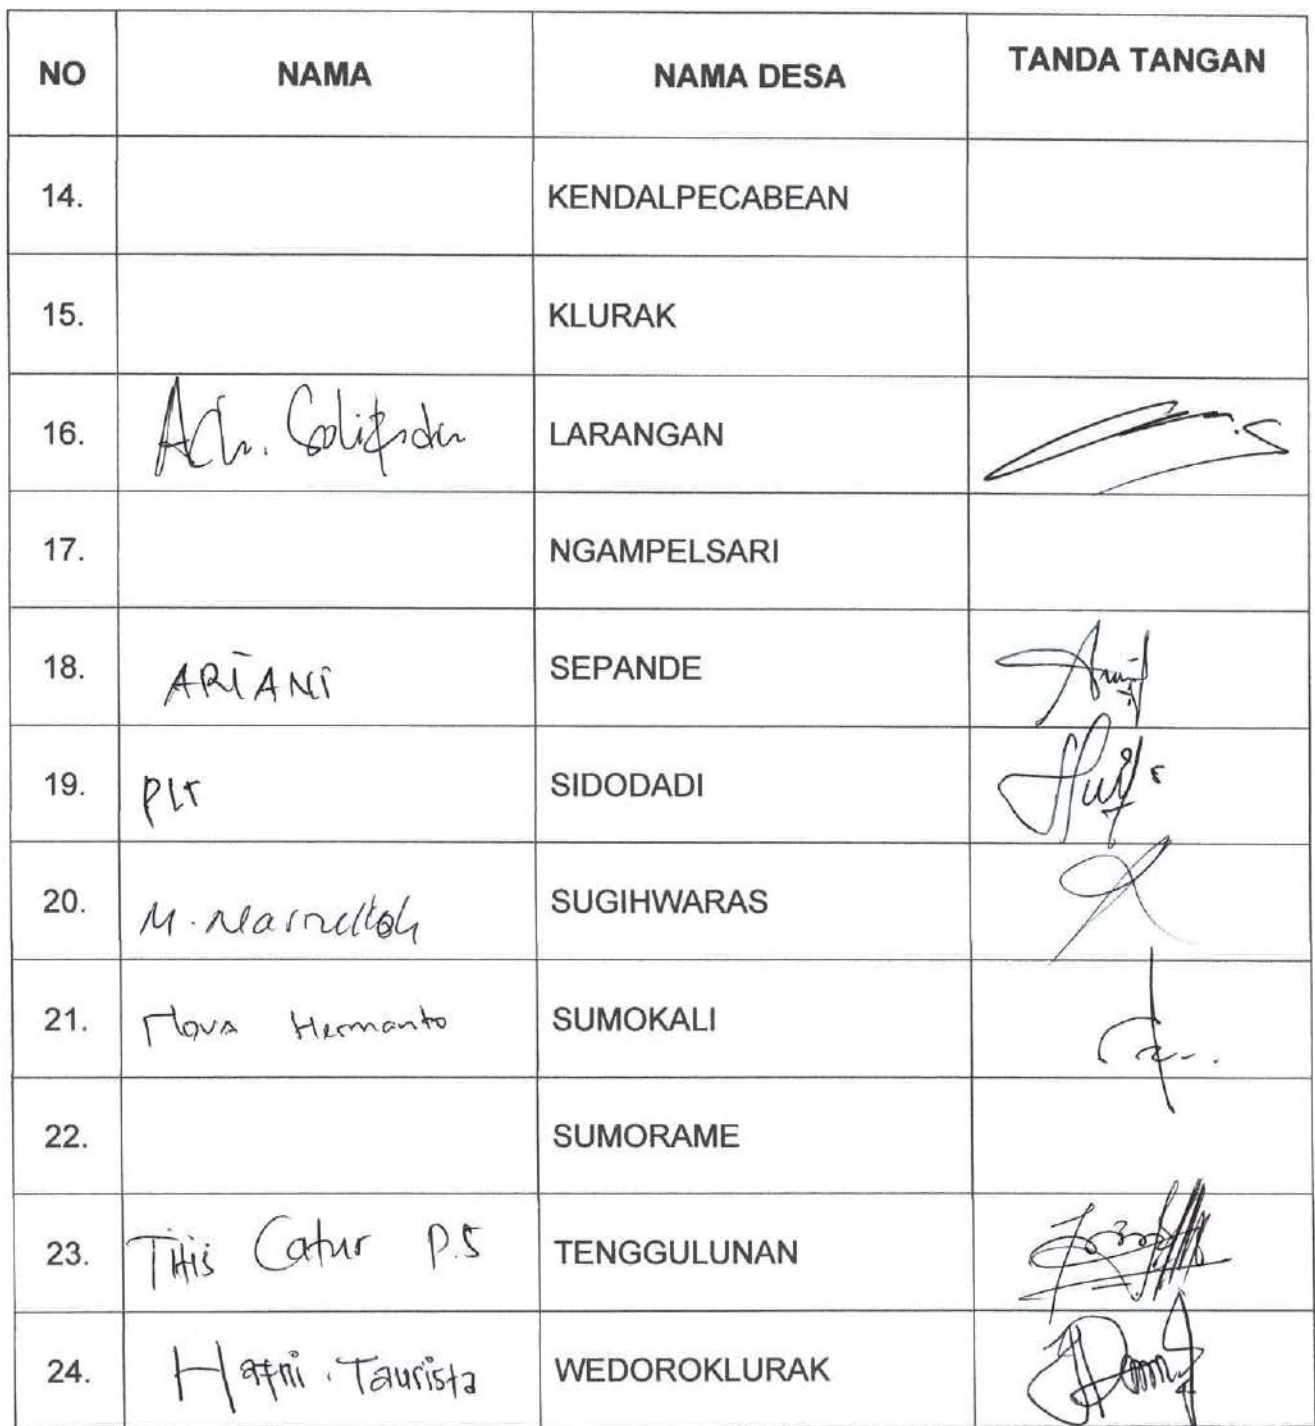 NO NAMA NAMA DESA TANDA TANGAN
14. KENDALPECABEAN
15. KLURAK
16. Ach. LARANGAN
17. NGAMPELSARI
18. ARIANI SEPANDE
19. PLT SIDODADI
20. M. SUGIHWARAS
21. Nova Hermanto SUMOKALI
22. SUMORAME
23. Titis Catur P.S TENGGULUNAN
24. Hafni. Taurista WEDOROKLURAK